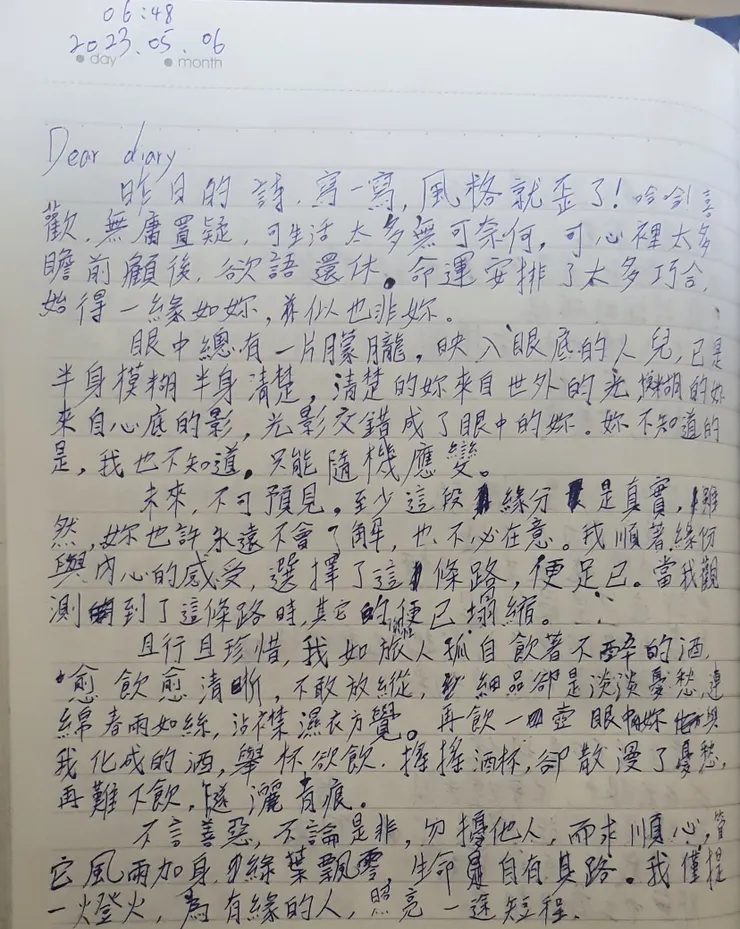 06:48
2023.05.06
day month
Dear diary
昨日的詩,寫一寫,風格就歪了!哈哈!喜
歡,無庸置疑,可生活太多無可奈何,可心裡太多
瞻前顧後,欲語還休。命運安排了太多巧合,
始得一緣如妳,並似也非妳。
眼中總有一片朦朧,映入眼底的人兒,已是
半身模糊半身清楚,清楚的妳來自世外的光,模糊的妳
來自心底的影,光影交錯成了眼中的妳。妳不知道的
是,我也不知道。只能隨機應變。
未來,不可預見。至少這段緣分是真實,雖
然,妳也許永遠不會了解,也不必在意。我順著緣份
與內心的感受,選擇了這條路,便足已。當我觀
測到了這條路時,其它的便已塌縮。
且行且珍惜,我如旅人孤自飲著不醉的酒,
愈飲愈清晰,不敢放縱,細品卻是淡淡憂愁,連
綿春雨如絲,沾襟濕衣方覺。再飲一壺眼中妳與
我化成的酒,舉杯欲飲,搖搖酒杯,卻散漫了憂愁,
再難下飲,灑青痕。
不言善惡,不論是非,勿擾他人,而求順心,管
它風雨加身,綠葉飄零,生命自有其路。我僅提
一燈火,為有緣的人,照亮一途短程。